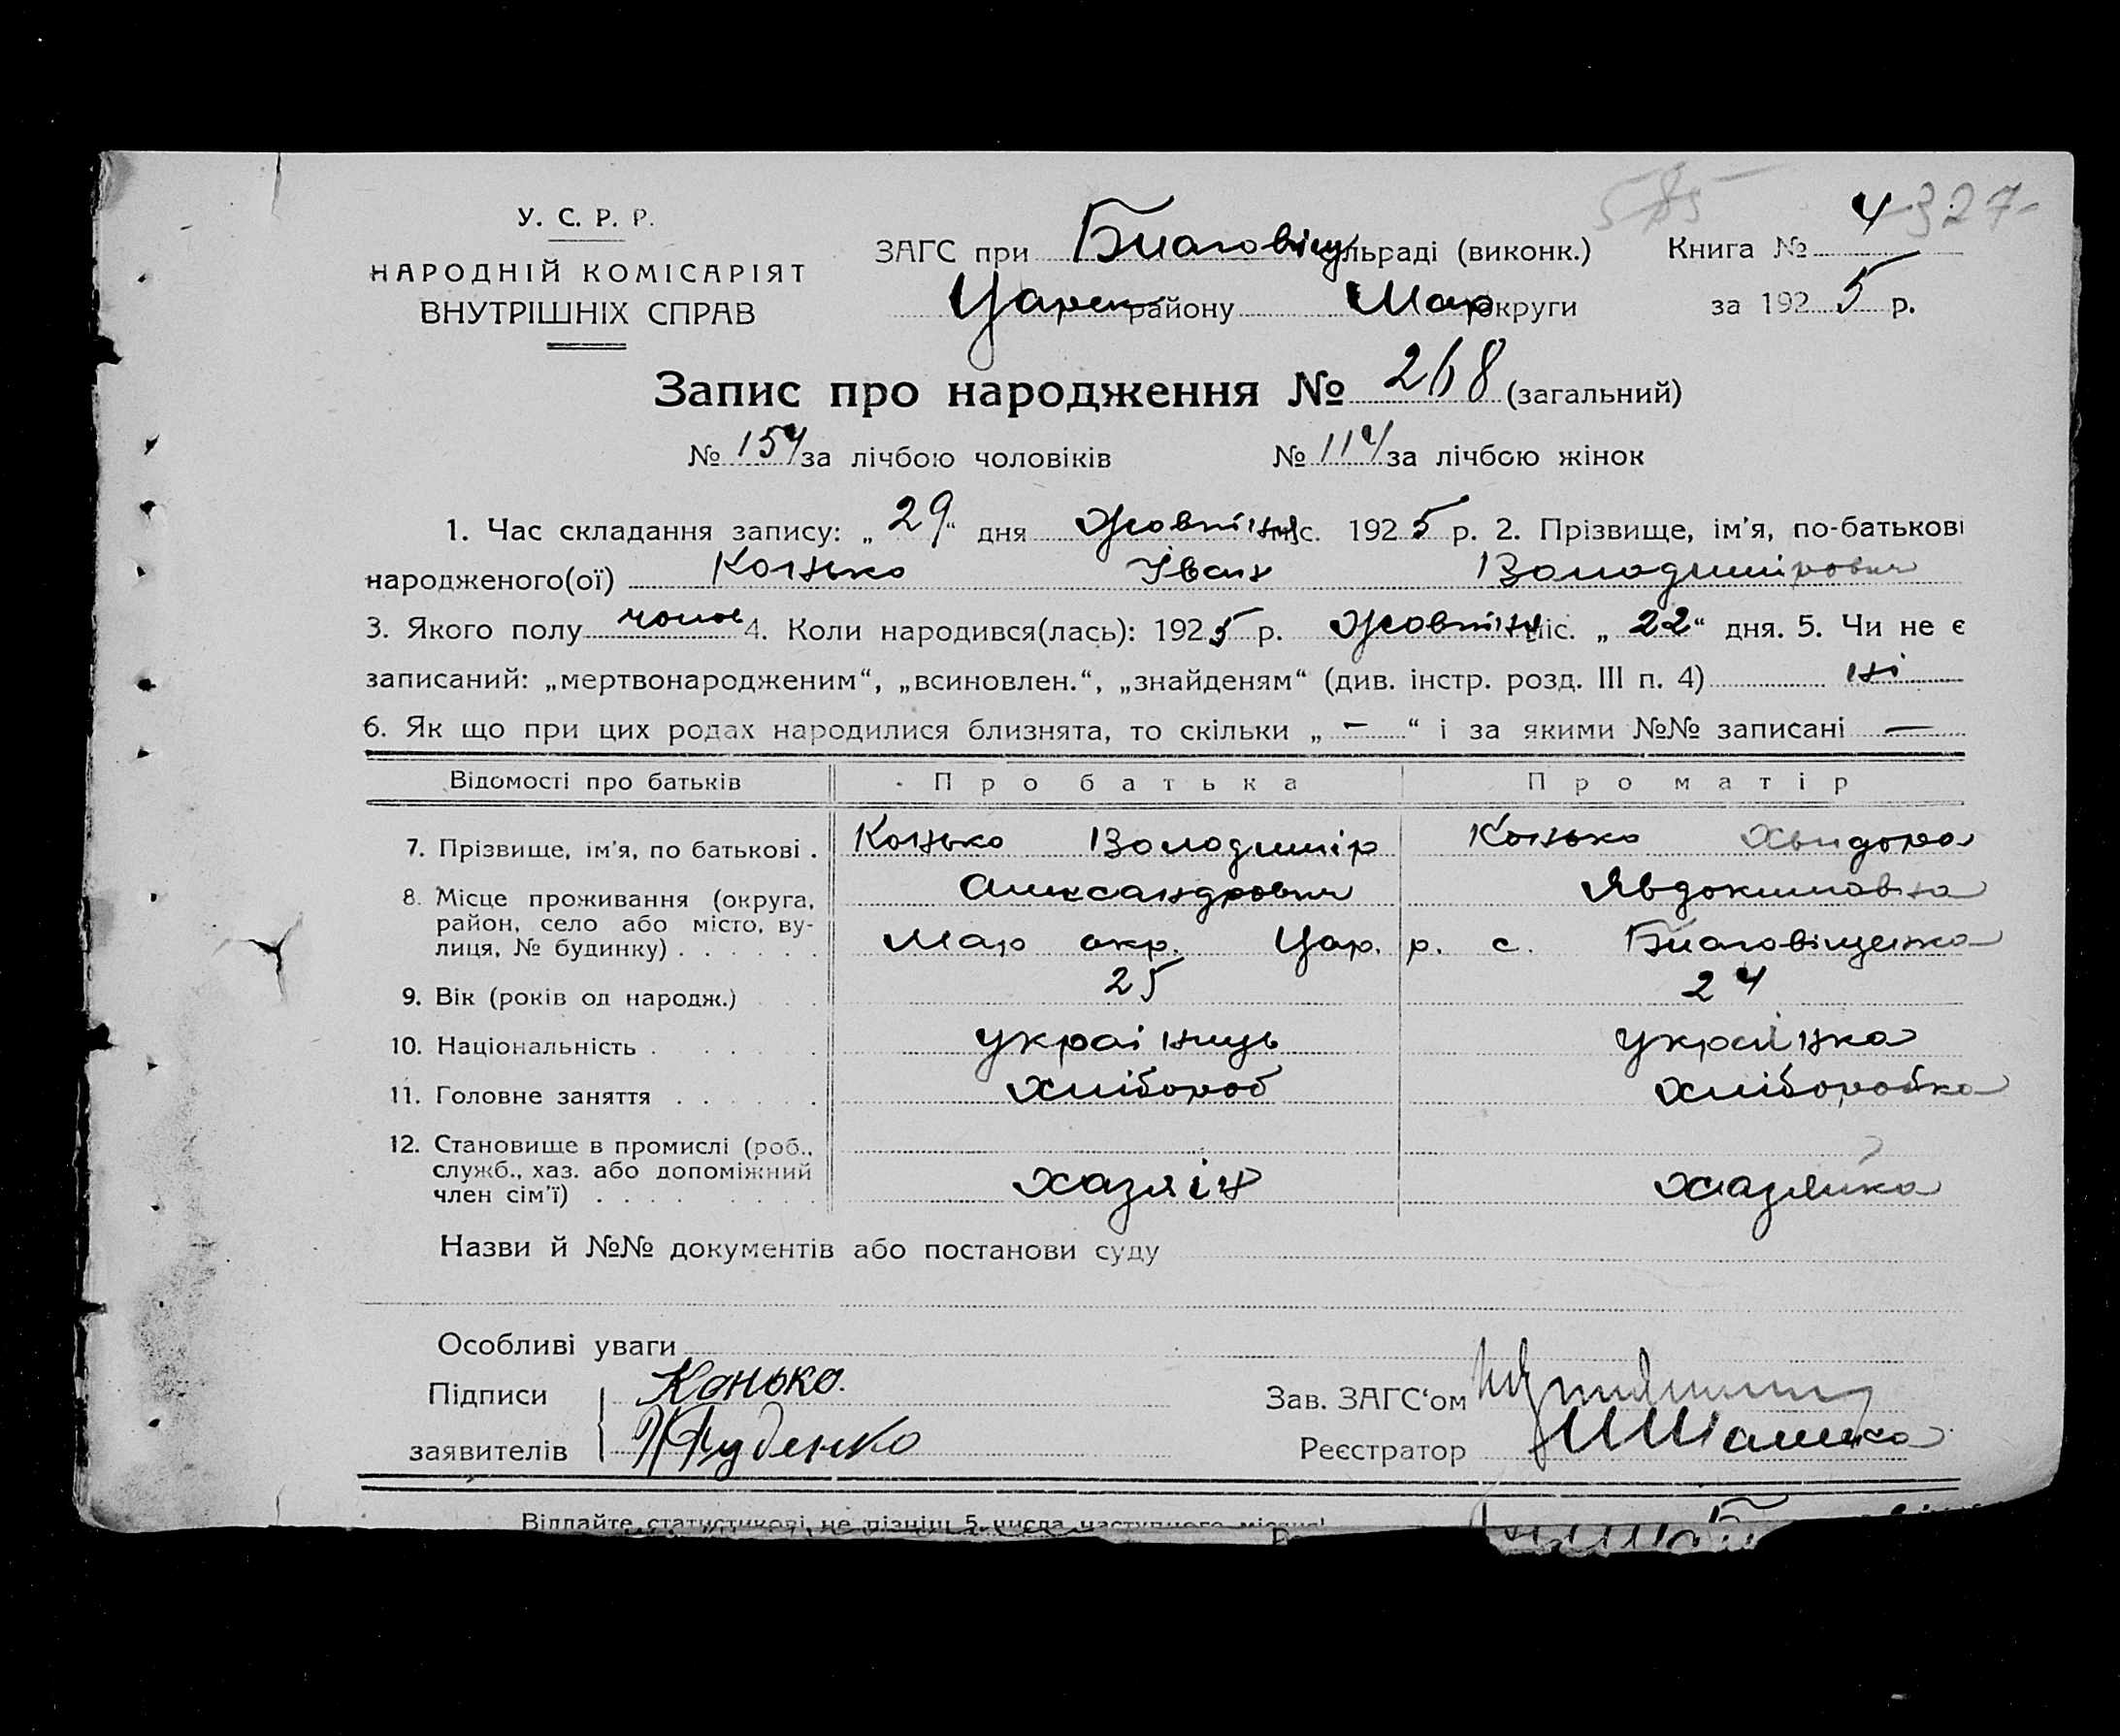 585
4 327-
У. С. Р. Р.
НАРОДНІЙ КОМІСАРІЯТ
ВНУТРІШНІХ СПРАВ
ЗАГС при Благовіщ сільраді (виконк.) Книга №
Царек району Мар округи за 1925 р.
Запис про народження № 268 (загальний)
№ 154 за лічбою чоловіків № 114 за лічбою жінок
1. Час складання запису: „29“ дня Жовтня міс. 1925 р. 2. Прізвище, ім’я, по-батькові
народженого(ої) Конько Іван Володимірович
3. Якого полу чолов 4. Коли народився(лась): 1925 р. Жовтня міс. „22“ дня. 5. Чи не є
записаний: „мертвонародженим“, „всиновлен.“, „знайденям“ (див. інстр. розд. III п. 4) ні
6. Як що при цих родах народилися близнята, то скільки „ — “ і за якими №№ записані —
Відомості про батьків Про батька Про матір
7. Прізвище, ім’я, по батькові . Конько Володимір Конько Хвидора
Александрович Явдокимовна
8. Місце проживання (округа,
район, село або місто, ву-
лиця, № будинку) . . . . . . Мар окр. Цар. р. с. Благовіщенка
9. Вік (років од народж.) 25 24
10. Національність . . . . . українць українка
11. Головне заняття . . . . . . хлібороб хліборобка
12. Становище в промислі (роб.,
служб., хаз. або допоміжний
член сім’ї) . . . . хазяін хазяйка
Назви й №№ документів або постанови суду
Особливі уваги
Підписи Конько. Зав. ЗАГС‘ом
заявителів Руденко Реєстратор
Віддайте статистикові не пізніш 5 числа наступного місяця!